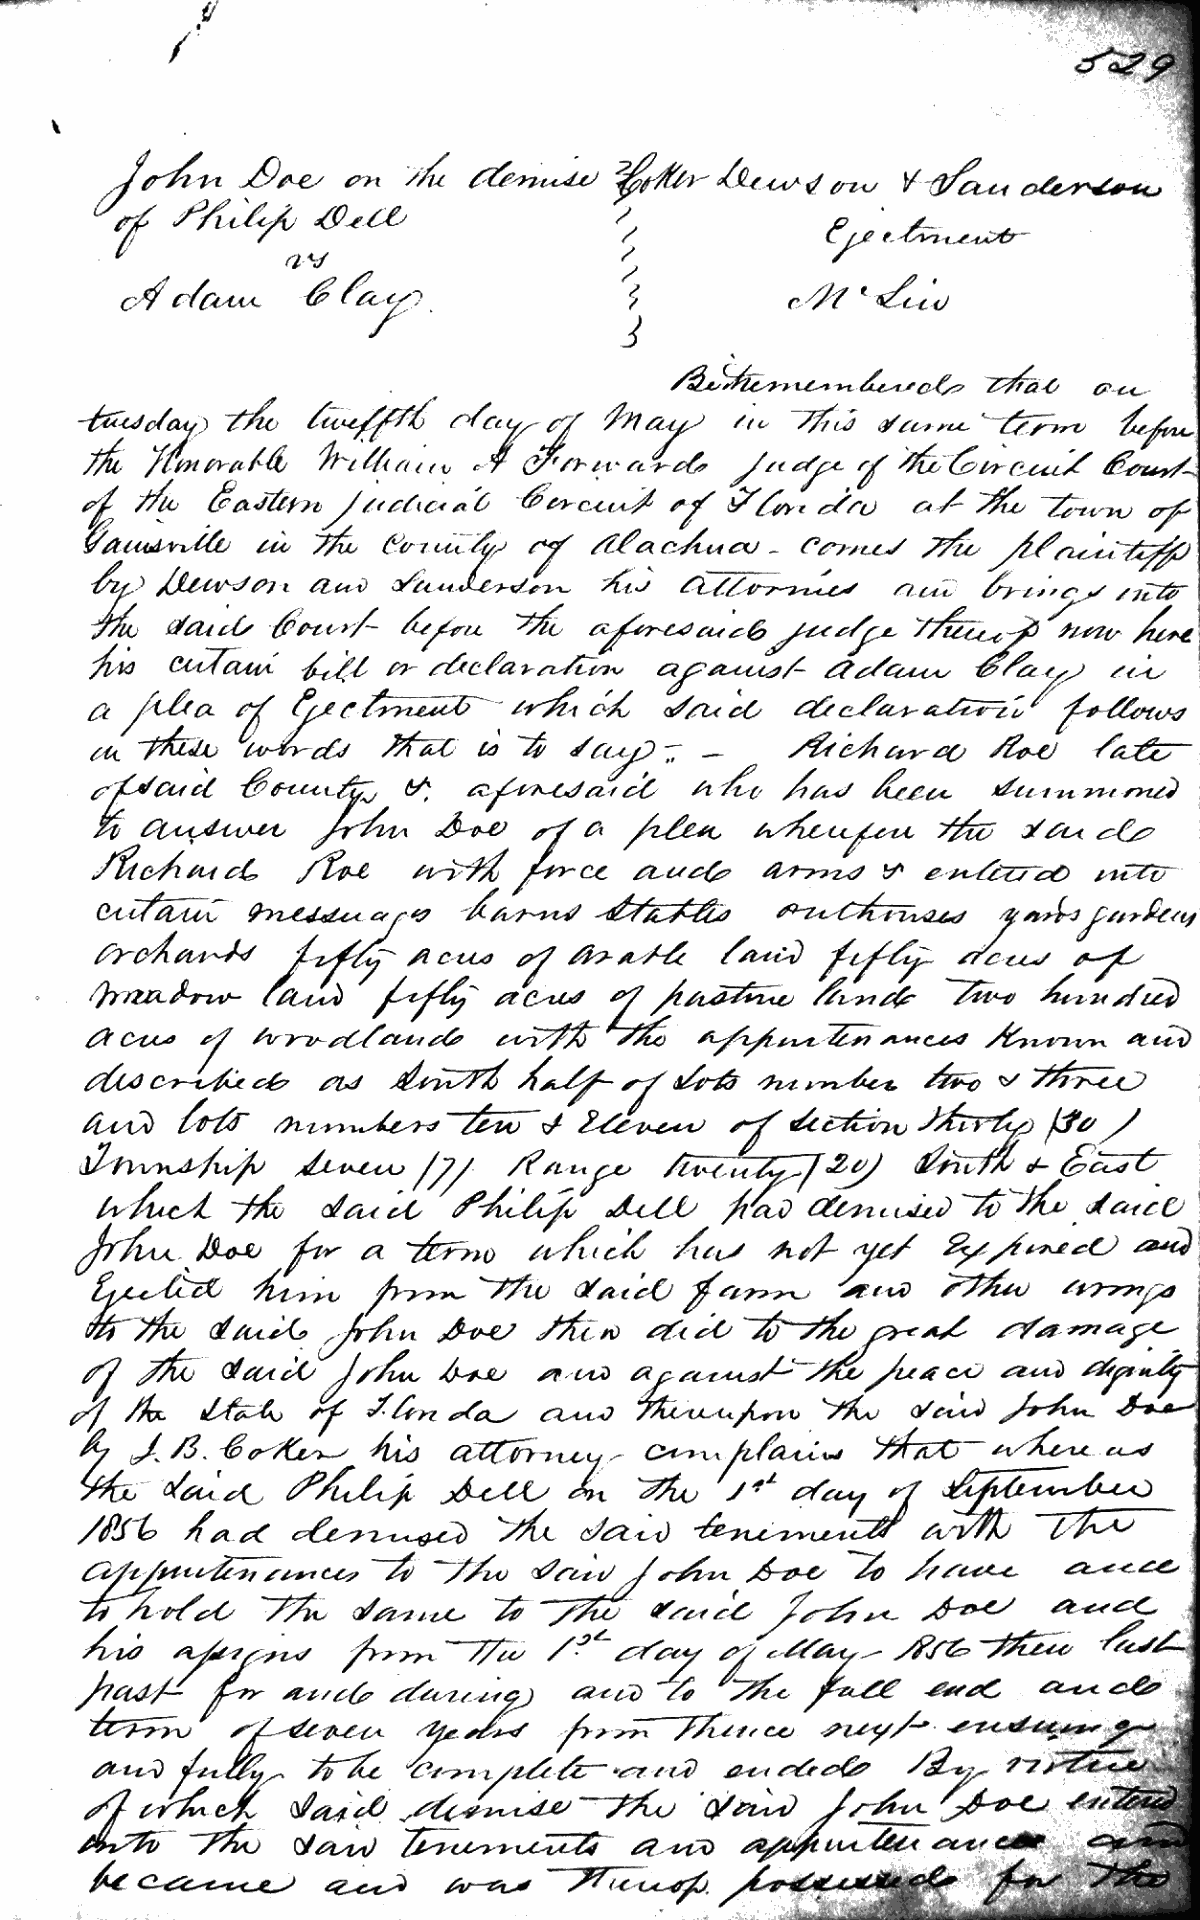 529
John Doe on the demise } Coker Dewson & Sanderson
of Philip Dell
Ejectment
vs
Adam Clay.
McLin
Be it remembered that on
tuesday the twelfth day of May in this same term before
the Honorable William A Forward Judge of the Circuit Court
of the Eastern judicial Circuit of Florida at the town of
Gainsville in the County of Alachua - comes the plaintiff
by Dewson and Sanderson his attornies and brings into
the said Court before the aforesaid judge thereof now here
his certain bill or declaration against Adam Clay in
a plea of Ejectment which said declaration follows
in these words that is to say :. - Richard Roe late
of said County &. aforesaid who has been summoned
to answer John Doe of a plea wherefore the said
Richard Roe with force and arms & entered into
certain messuages barns stables outhouses yards gardens
orchards fifty acres of arable land fifty acres of
meadow land fifty acres of pasture land two hundred
acres of woodland with the appurtenances Known and
discribed as South half of Lots number two & three
and lots numbers ten & Eleven of section thirty (30)
Township seven (7) Range twenty (20) South & East
which the said Philip Dell had demised to the said
John Doe for a term which has not yet Expired and
Ejected him from the said farm and other wrongs
to the said John Doe then did to the great damage
of the said John Doe and against the peace and dignity
of the State of Florida and thereupon the said John Doe
by J. B. Coker his attorney complains that whereas
the said Philip Dell on the 1st day of September
1856 had demised the said tenements with the
appurtenances to the said John Doe to have and
to hold the same to the said John Doe and
his assigns from the 1st day of May 1856 then last
past for and during and to the full end and
term of seven years from thence next ensuing
and fully to be complete and ended By virtue
of which said demise the said John Doe entered
into the said tenements and appurtenances and
became and was thereof possessed for the